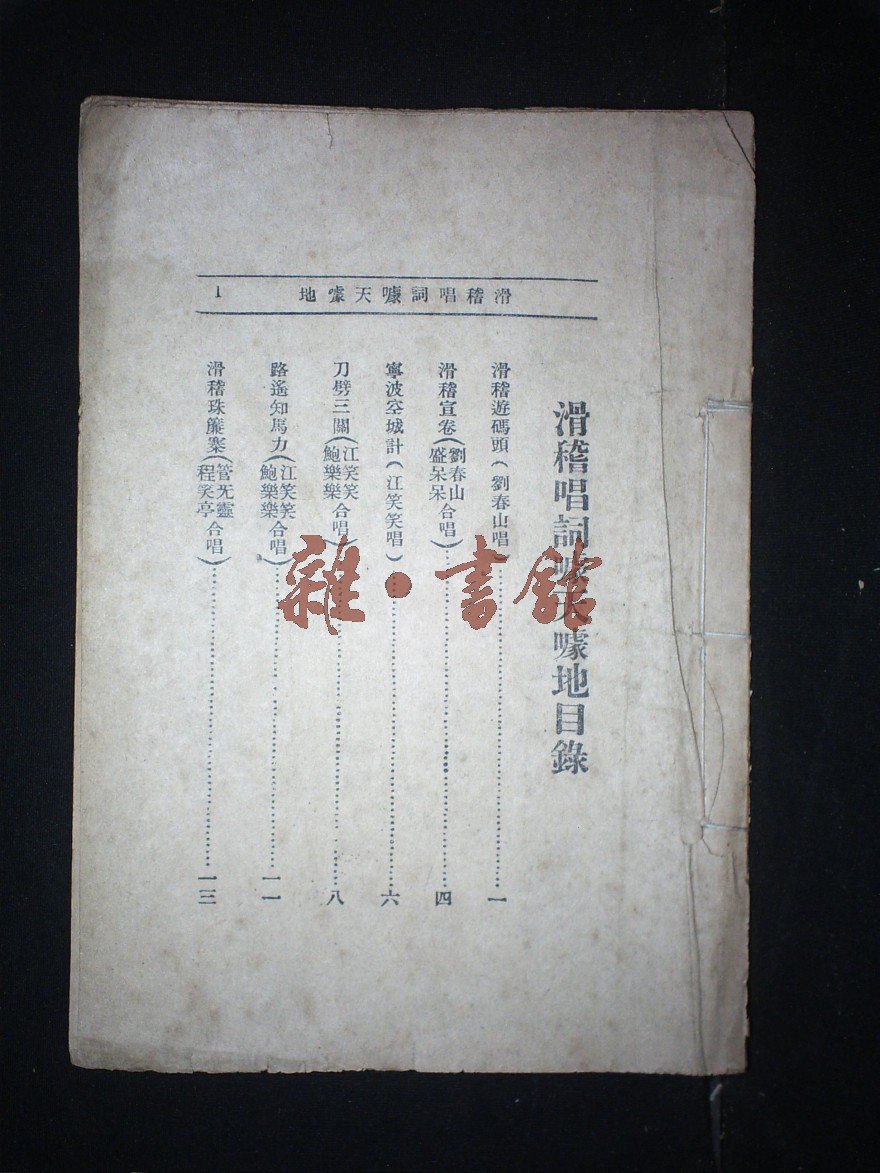 滑稽唱詞噱天噱地 1
滑稽唱詞噱天噱地目錄
滑稽遊碼頭(劉春山唱)……一
滑稽宣卷(劉春山 盛呆呆 合唱)……四
寧波空城計(江笑笑唱)……六
刀劈三關(江笑笑 鮑樂樂 合唱)……八
路遙知馬力(江笑笑 鮑樂樂 合唱)……一一
滑稽珠簾寨(管无靈 程笑亭 合唱)……一三
雜·書館